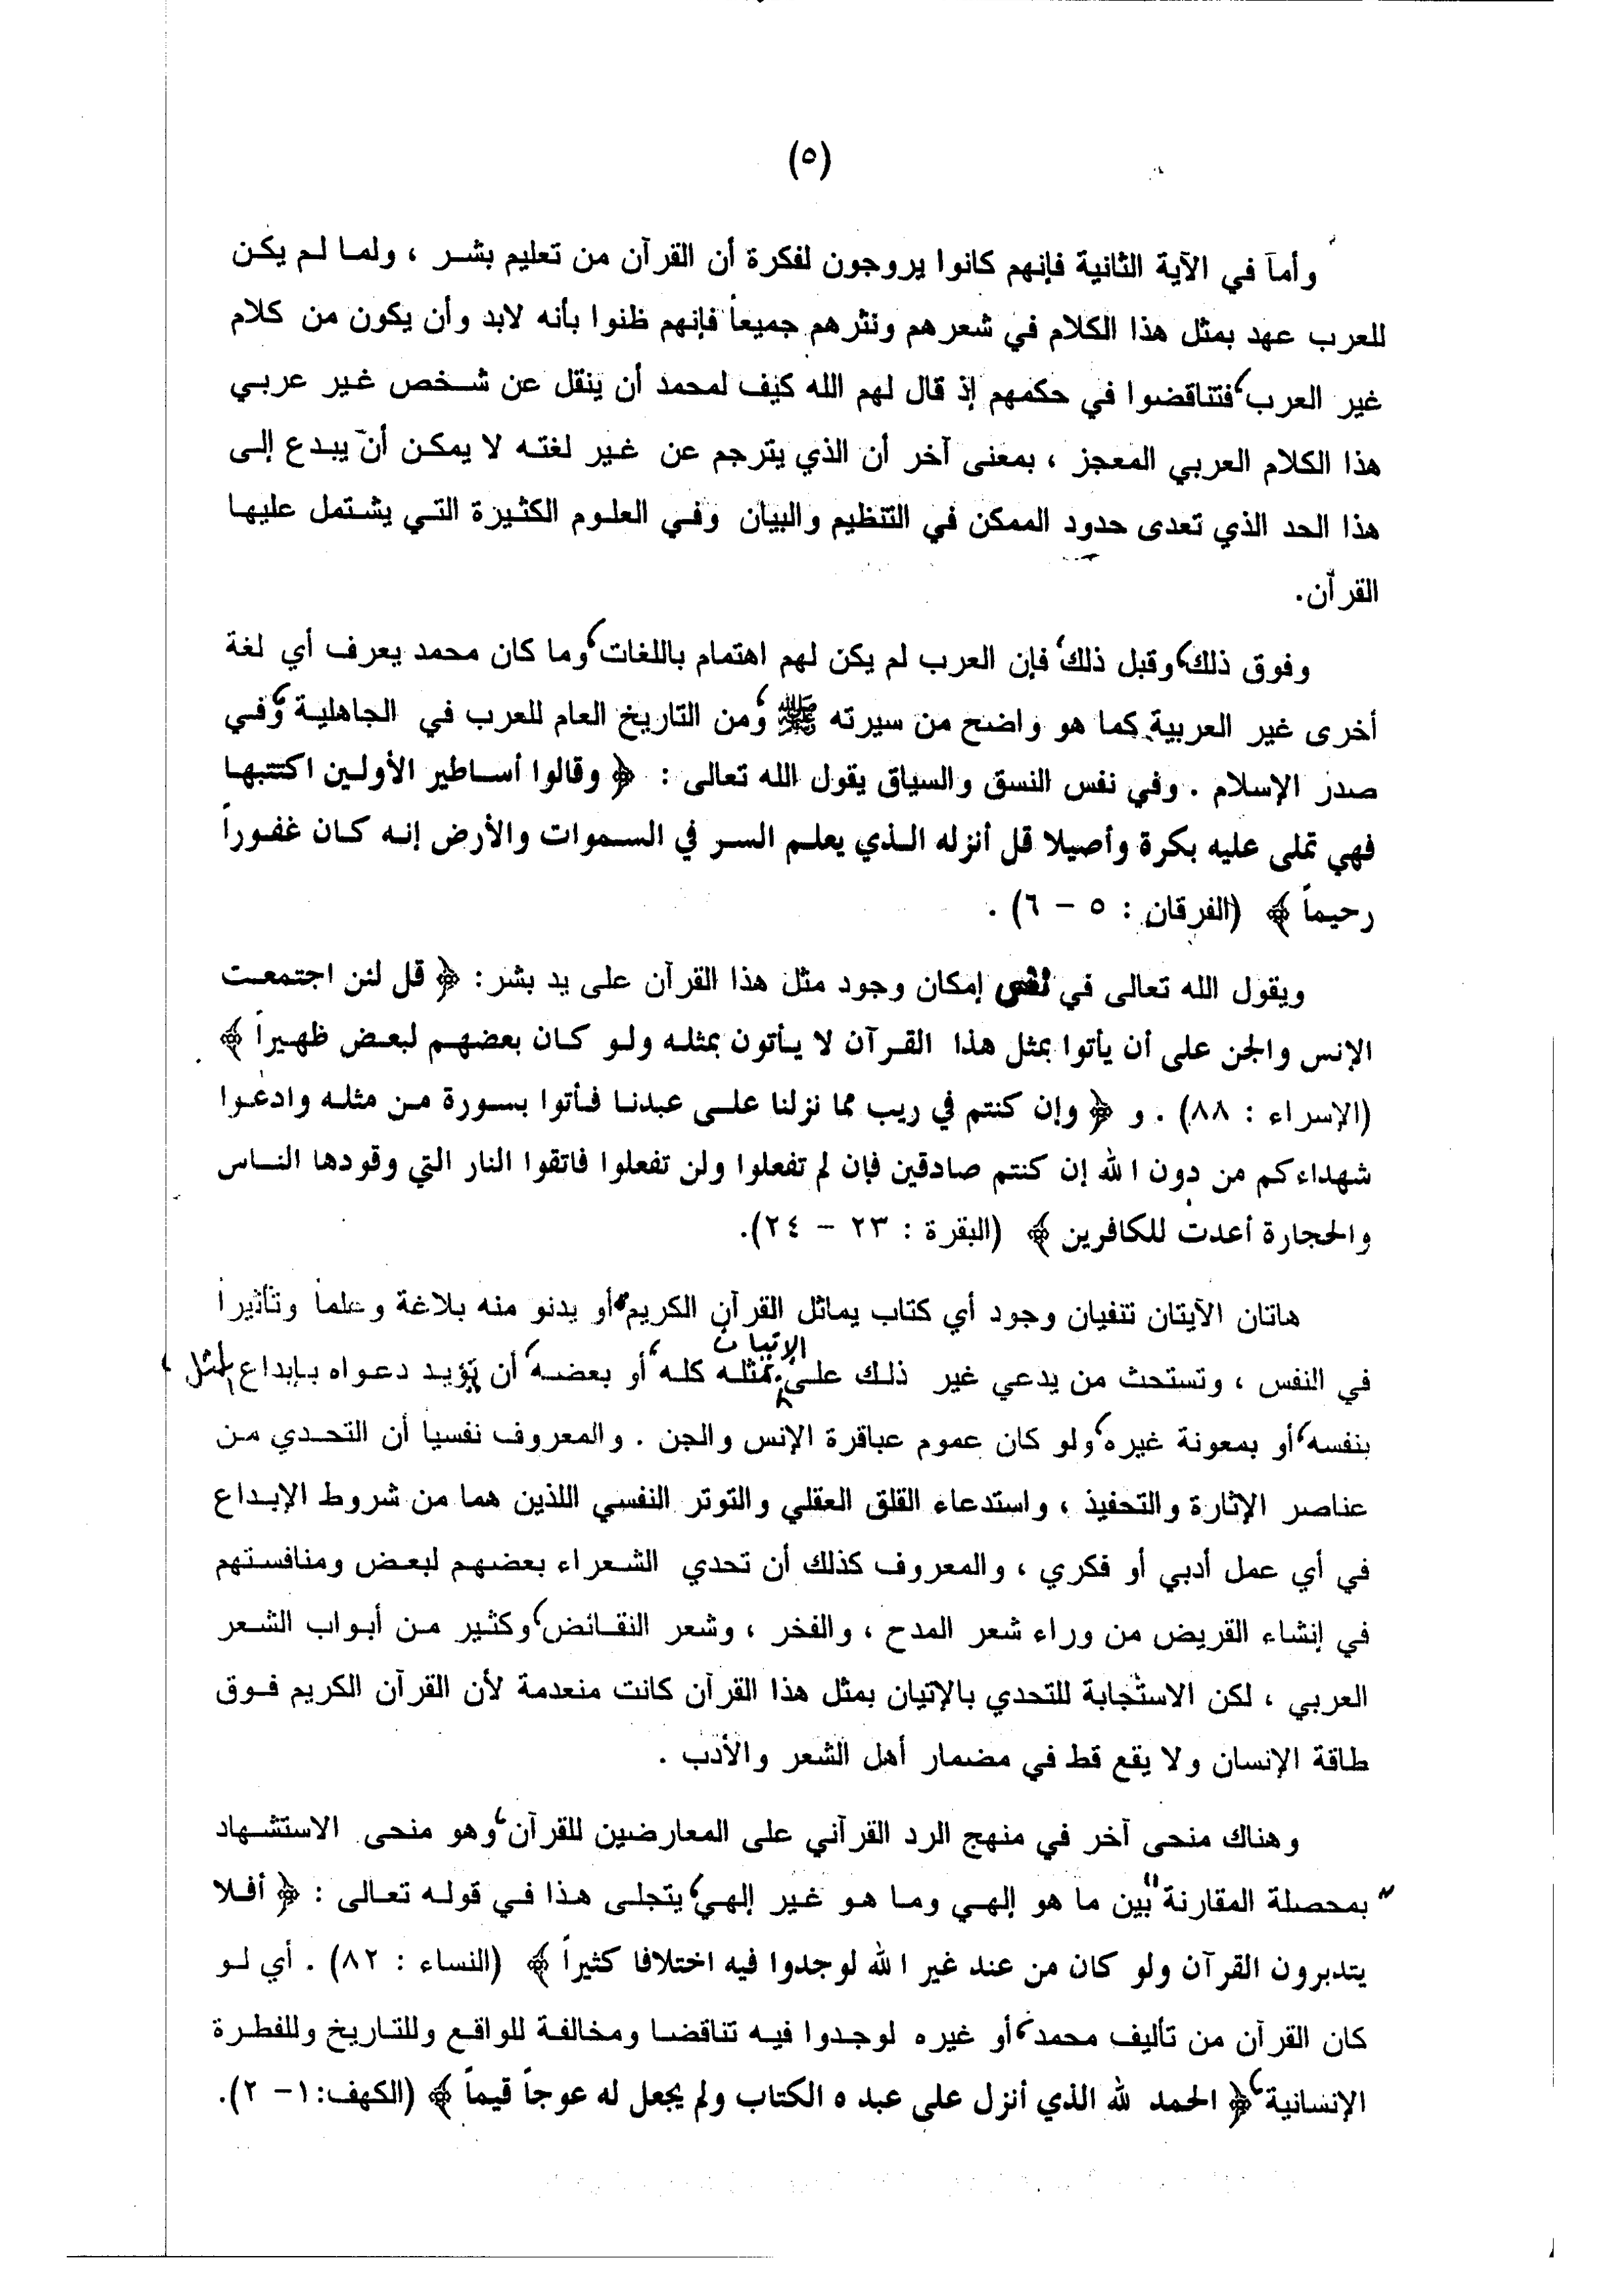 (٥)
وأما في الآية الثانية فإنهم كانوا يروجون لفكرة أن القرآن من تعليم بشر ، ولما لم يكن
للعرب عهد بمثل هذا الكلام في شعرهم ونثرهم جميعاً فإنهم ظنوا بأنه لابد وأن يكون من كلام
غير العرب، فتناقضوا في حكمهم إذ قال لهم الله كيف لمحمد أن ينقل عن شخص غير عربي
هذا الكلام العربي المعجز ، بمعنى آخر أن الذي يترجم عن غير لغته لا يمكن أن يبدع إلى
هذا الحد الذي تعدى حدود الممكن في التنظيم والبيان وفي العلوم الكثيرة التي يشتمل عليها
القرآن.
وفوق ذلك، وقبل ذلك، فإن العرب لم يكن لهم اهتمام باللغات، وما كان محمد يعرف أي لغة
أخرى غير العربية كما هو واضح من سيرته ﷺ، ومن التاريخ العام للعرب في الجاهلية، وفي
صدر الإسلام . وفي نفس النسق والسياق يقول الله تعالى : ﴿ وقالوا أساطير الأولين اكتتبها
فهي تملى عليه بكرة وأصيلا قل أنزله الذي يعلم السر في السموات والأرض إنه كان غفوراً
رحيماً ﴾ (الفرقان : ٥ – ٦) .
ويقول الله تعالى في إمكان وجود مثل هذا القرآن على يد بشر: ﴿ قل لئن اجتمعت
الإنس والجن على أن يأتوا بمثل هذا القرآن لا يأتون بمثله ولو كان بعضهم لبعض ظهيراً ﴾
(الإسراء : ٨٨) . و ﴿ وإن كنتم في ريب مما نزلنا على عبدنا فأتوا بسورة من مثله وادعوا
شهداءكم من دون الله إن كنتم صادقين فإن لم تفعلوا ولن تفعلوا فاتقوا النار التي وقودها الناس
والحجارة أعدت للكافرين ﴾ (البقرة : ٢٣ – ٢٤).
هاتان الآيتان تنفيان وجود أي كتاب يماثل القرآن الكريم، أو يدنو منه بلاغة وعلماً وتأثيراً
في النفس ، وتستحث من يدعي غير ذلك على الإتيان بمثله كله، أو بعضه، أن يؤيد دعواه بإبداع المثل ،
بنفسه، أو بمعونة غيره، ولو كان عموم عباقرة الإنس والجن . والمعروف نفسياً أن التحدي من
عناصر الإثارة والتحفيذ ، واستدعاء القلق العقلي والتوتر النفسي اللذين هما من شروط الإبداع
في أي عمل أدبي أو فكري ، والمعروف كذلك أن تحدي الشعراء بعضهم لبعض ومنافستهم
في إنشاء القريض من وراء شعر المدح ، والفخر ، وشعر النقائض، وكثير من أبواب الشعر
العربي ، لكن الاستجابة للتحدي بالإتيان بمثل هذا القرآن كانت منعدمة لأن القرآن الكريم فوق
طاقة الإنسان ولا يقع قط في مضمار أهل الشعر والأدب .
وهناك منحى آخر في منهج الرد القرآني على المعارضين للقرآن، وهو منحى الاستشهاد
"بمحصلة المقارنة" بين ما هو إلهي وما هو غير إلهي، يتجلى هذا في قوله تعالى : ﴿ أفلا
يتدبرون القرآن ولو كان من عند غير الله لوجدوا فيه اختلافا كثيراً ﴾ (النساء : ٨٢) . أي لو
كان القرآن من تأليف محمد، أو غيره لوجدوا فيه تناقضا ومخالفة للواقع وللتاريخ وللفطرة
الإنسانية، ﴿ الحمد لله الذي أنزل على عبده الكتاب ولم يجعل له عوجاً قيماً ﴾ (الكهف: ١ – ٢).